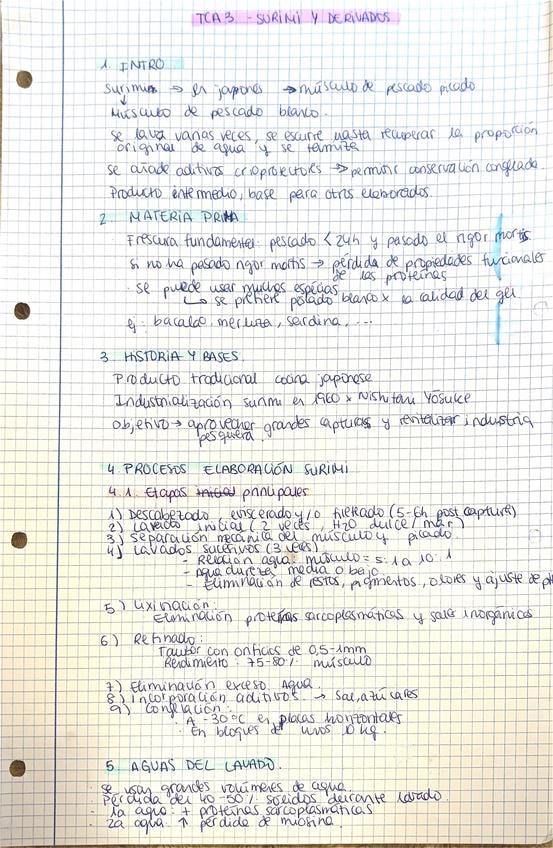 TCA 3 - SURIMI Y DERIVADOS
1. INTRO
Surimi → en japonés → músculo de pescado picado
↓
Músculo de pescado blanco.
Se lava varias veces, se escurre hasta recuperar la proporción
original de agua y se tamiza
Se añade aditivos crioprotectores → permitir conservación congelada.
Producto intermedio, base para otros elaborados.
2. MATERIA PRIMA
Frescura fundamental: pescado < 24h y pasado el rigor mortis
Si no ha pasado rigor mortis → pérdida de propiedades funcionales
de las proteínas
· se puede usar muchas especies
↳ se prefiere pescado blanco x la calidad del gel.
ej: bacalao, merluza, sardina, ...
3. HISTORIA Y BASES.
Producto tradicional cocina japonesa
Industrialización surimi en 1960 x Nishitani Yōsuke
Objetivo → aprovechar grandes capturas y revitalizar industria
pesquera.
4. PROCESOS ELABORACIÓN SURIMI
4.1. Etapas principales
1) Descabezado, eviscerado y/o fileteado (5-6h post captura)
2) Lavado inicial (2 veces, H2O dulce/mar)
3) Separación mecánica del músculo y picado.
4) Lavados sucesivos (3 veces)
- Relación agua: músculo = 5:1 a 10:1
- Agua dureza media o baja
- Eliminación de restos, pigmentos, olores y ajuste de pH
5) Lixiviación:
Eliminación proteínas sarcoplasmáticas y sales inorgánicas
6) Refinado:
Tambor con orificios de 0,5-1mm
Rendimiento: 75-80% músculo
7) Eliminación exceso agua.
8) Incorporación aditivos → Sal, azúcares
9) Congelación:
· A -30°C en placas horizontales
· En bloques de unos 10 kg.
5. AGUAS DEL LAVADO.
· se usan grandes volúmenes de agua.
· Pérdida del 40-50% sólidos durante lavado.
· 1a agua: + proteínas sarcoplasmáticas
· 2a agua: ↑ pérdida de miosina.